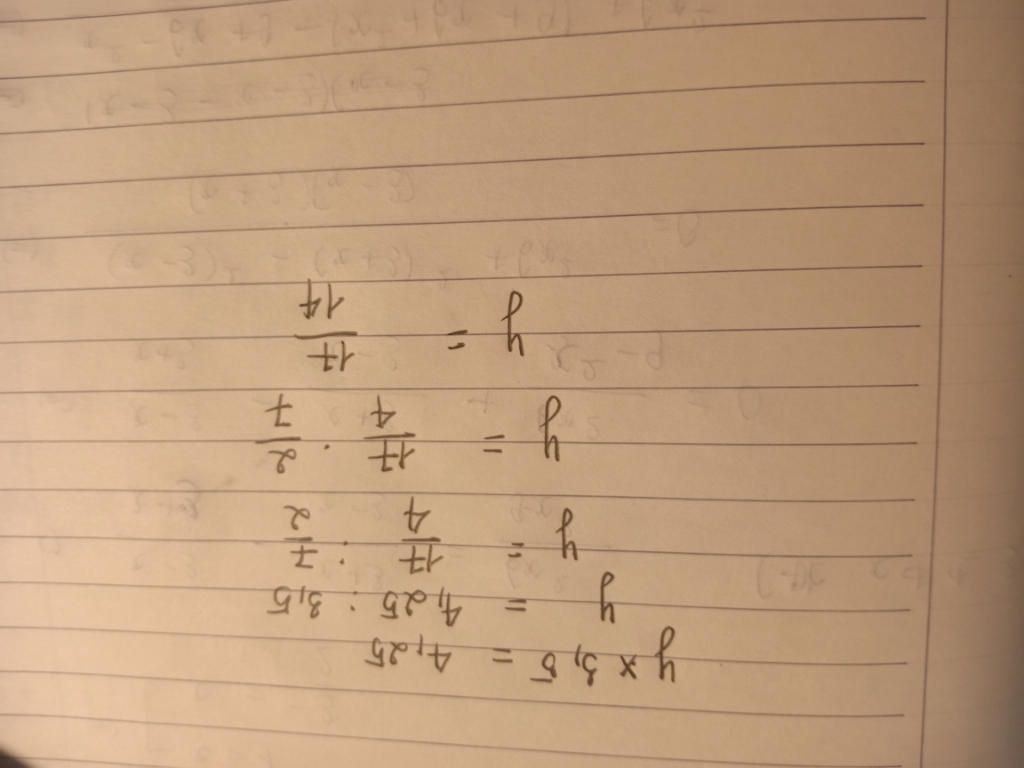 y x 3,5 = 4,25
y = 4,25 : 3,5
y = 17/4 : 7/2
y = 17/4 . 2/7
y = 17/14